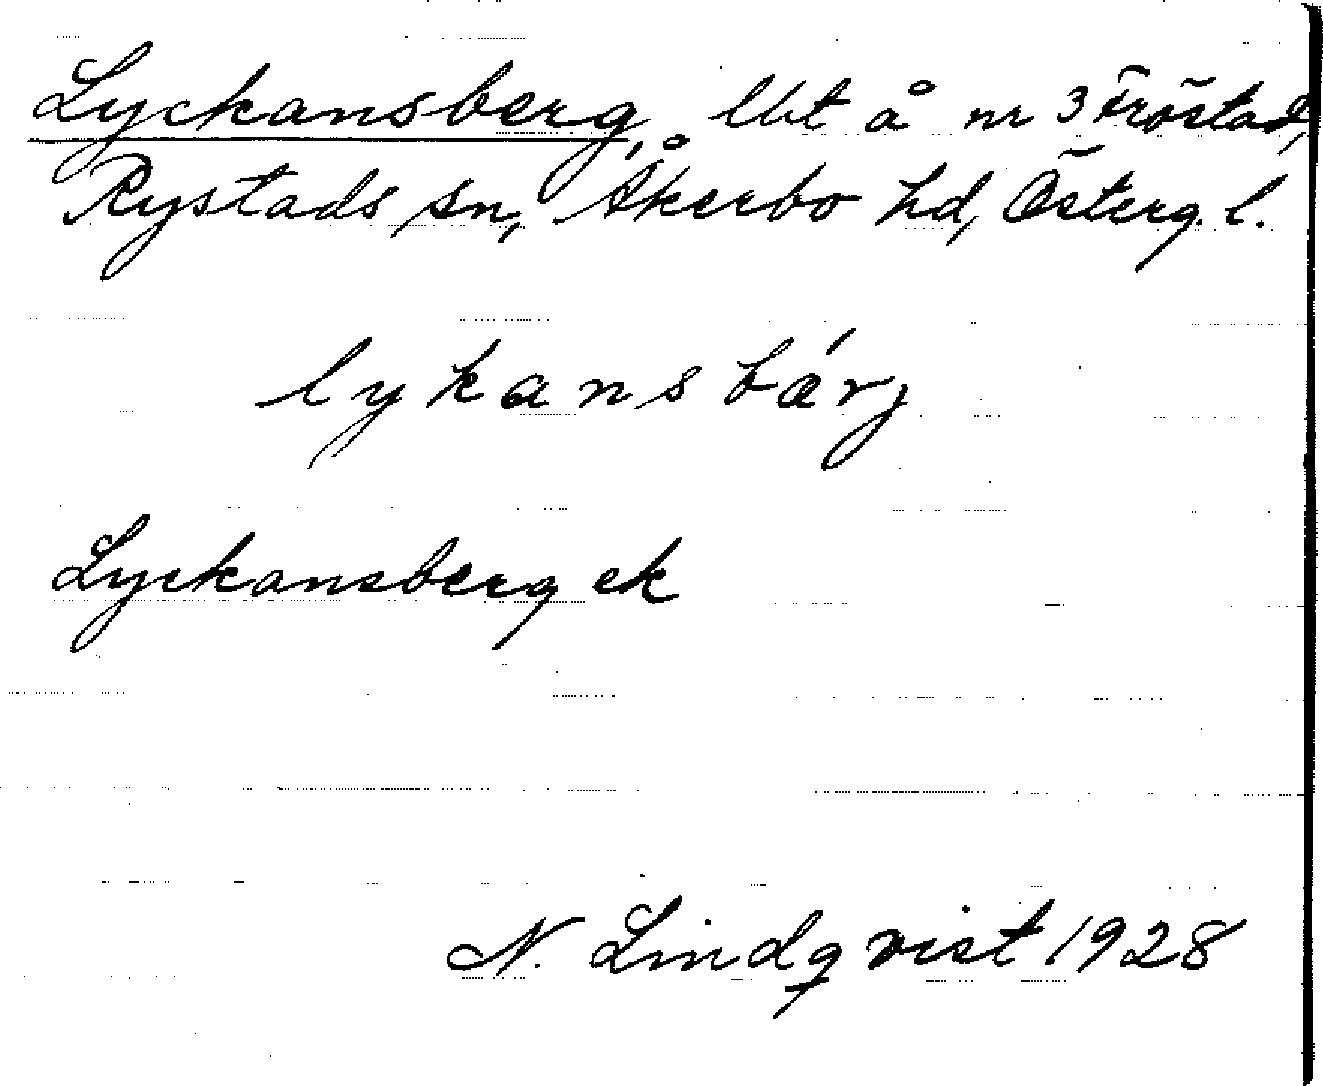 Lyckansberg, lbt å nr 3 Fröstad,
Rystads sn, Åkerbo hd, Österg. l.
lykansbǽrj
Lyckansberg ek
N. Lindqvist 1928